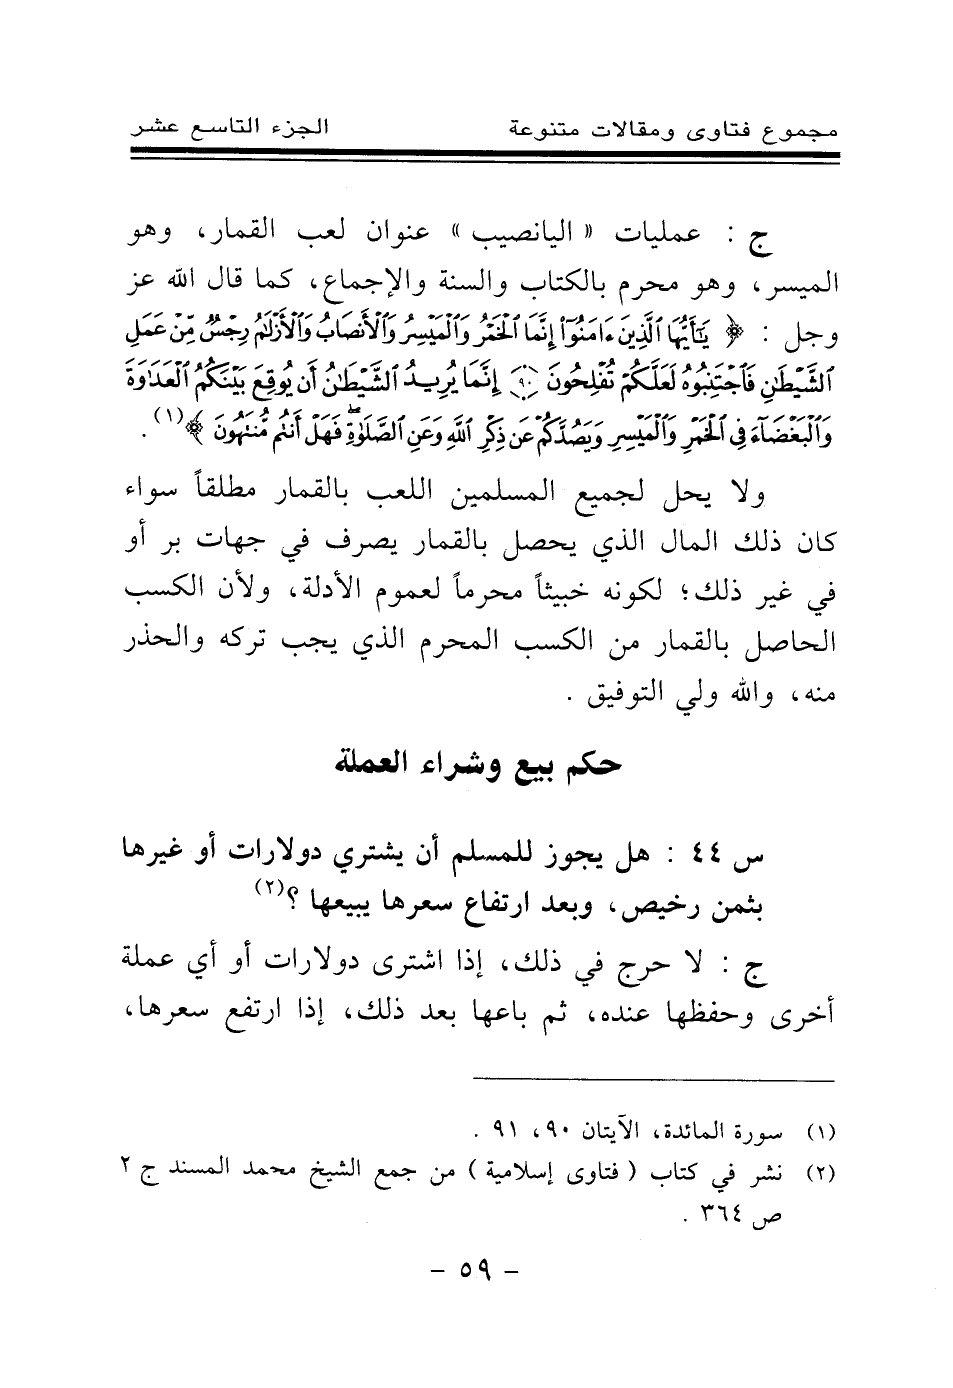 مجموع فتاوى ومقالات متنوعة الجزء التاسع عشر
ج : عمليات « اليانصيب » عنوان لعب القمار، وهو
الميسر، وهو محرم بالكتاب والسنة والإجماع، كما قال الله عز
وجل : ﴿ يَٰٓأَيُّهَا ٱلَّذِينَ ءَامَنُوٓا۟ إِنَّمَا ٱلْخَمْرُ وَٱلْمَيْسِرُ وَٱلْأَنصَابُ وَٱلْأَزْلَٰمُ رِجْسٌ مِّنْ عَمَلِ
ٱلشَّيْطَٰنِ فَٱجْتَنِبُوهُ لَعَلَّكُمْ تُفْلِحُونَ ۝٩٠ إِنَّمَا يُرِيدُ ٱلشَّيْطَٰنُ أَن يُوقِعَ بَيْنَكُمُ ٱلْعَدَٰوَةَ
وَٱلْبَغْضَآءَ فِى ٱلْخَمْرِ وَٱلْمَيْسِرِ وَيَصُدَّكُمْ عَن ذِكْرِ ٱللَّهِ وَعَنِ ٱلصَّلَوٰةِ ۖ فَهَلْ أَنتُم مُّنتَهُونَ ﴾(١) .
ولا يحل لجميع المسلمين اللعب بالقمار مطلقاً سواء
كان ذلك المال الذي يحصل بالقمار يصرف في جهات بر أو
في غير ذلك؛ لكونه خبيثاً محرماً لعموم الأدلة، ولأن الكسب
الحاصل بالقمار من الكسب المحرم الذي يجب تركه والحذر
منه، والله ولي التوفيق .
حكم بيع وشراء العملة
س ٤٤ : هل يجوز للمسلم أن يشتري دولارات أو غيرها
بثمن رخيص، وبعد ارتفاع سعرها يبيعها ؟(٢)
ج : لا حرج في ذلك، إذا اشترى دولارات أو أي عملة
أخرى وحفظها عنده، ثم باعها بعد ذلك، إذا ارتفع سعرها،
(١) سورة المائدة، الآيتان ٩٠، ٩١ .
(٢) نشر في كتاب ( فتاوى إسلامية ) من جمع الشيخ محمد المسند ج ٢
ص ٣٦٤ .
- ٥٩ -